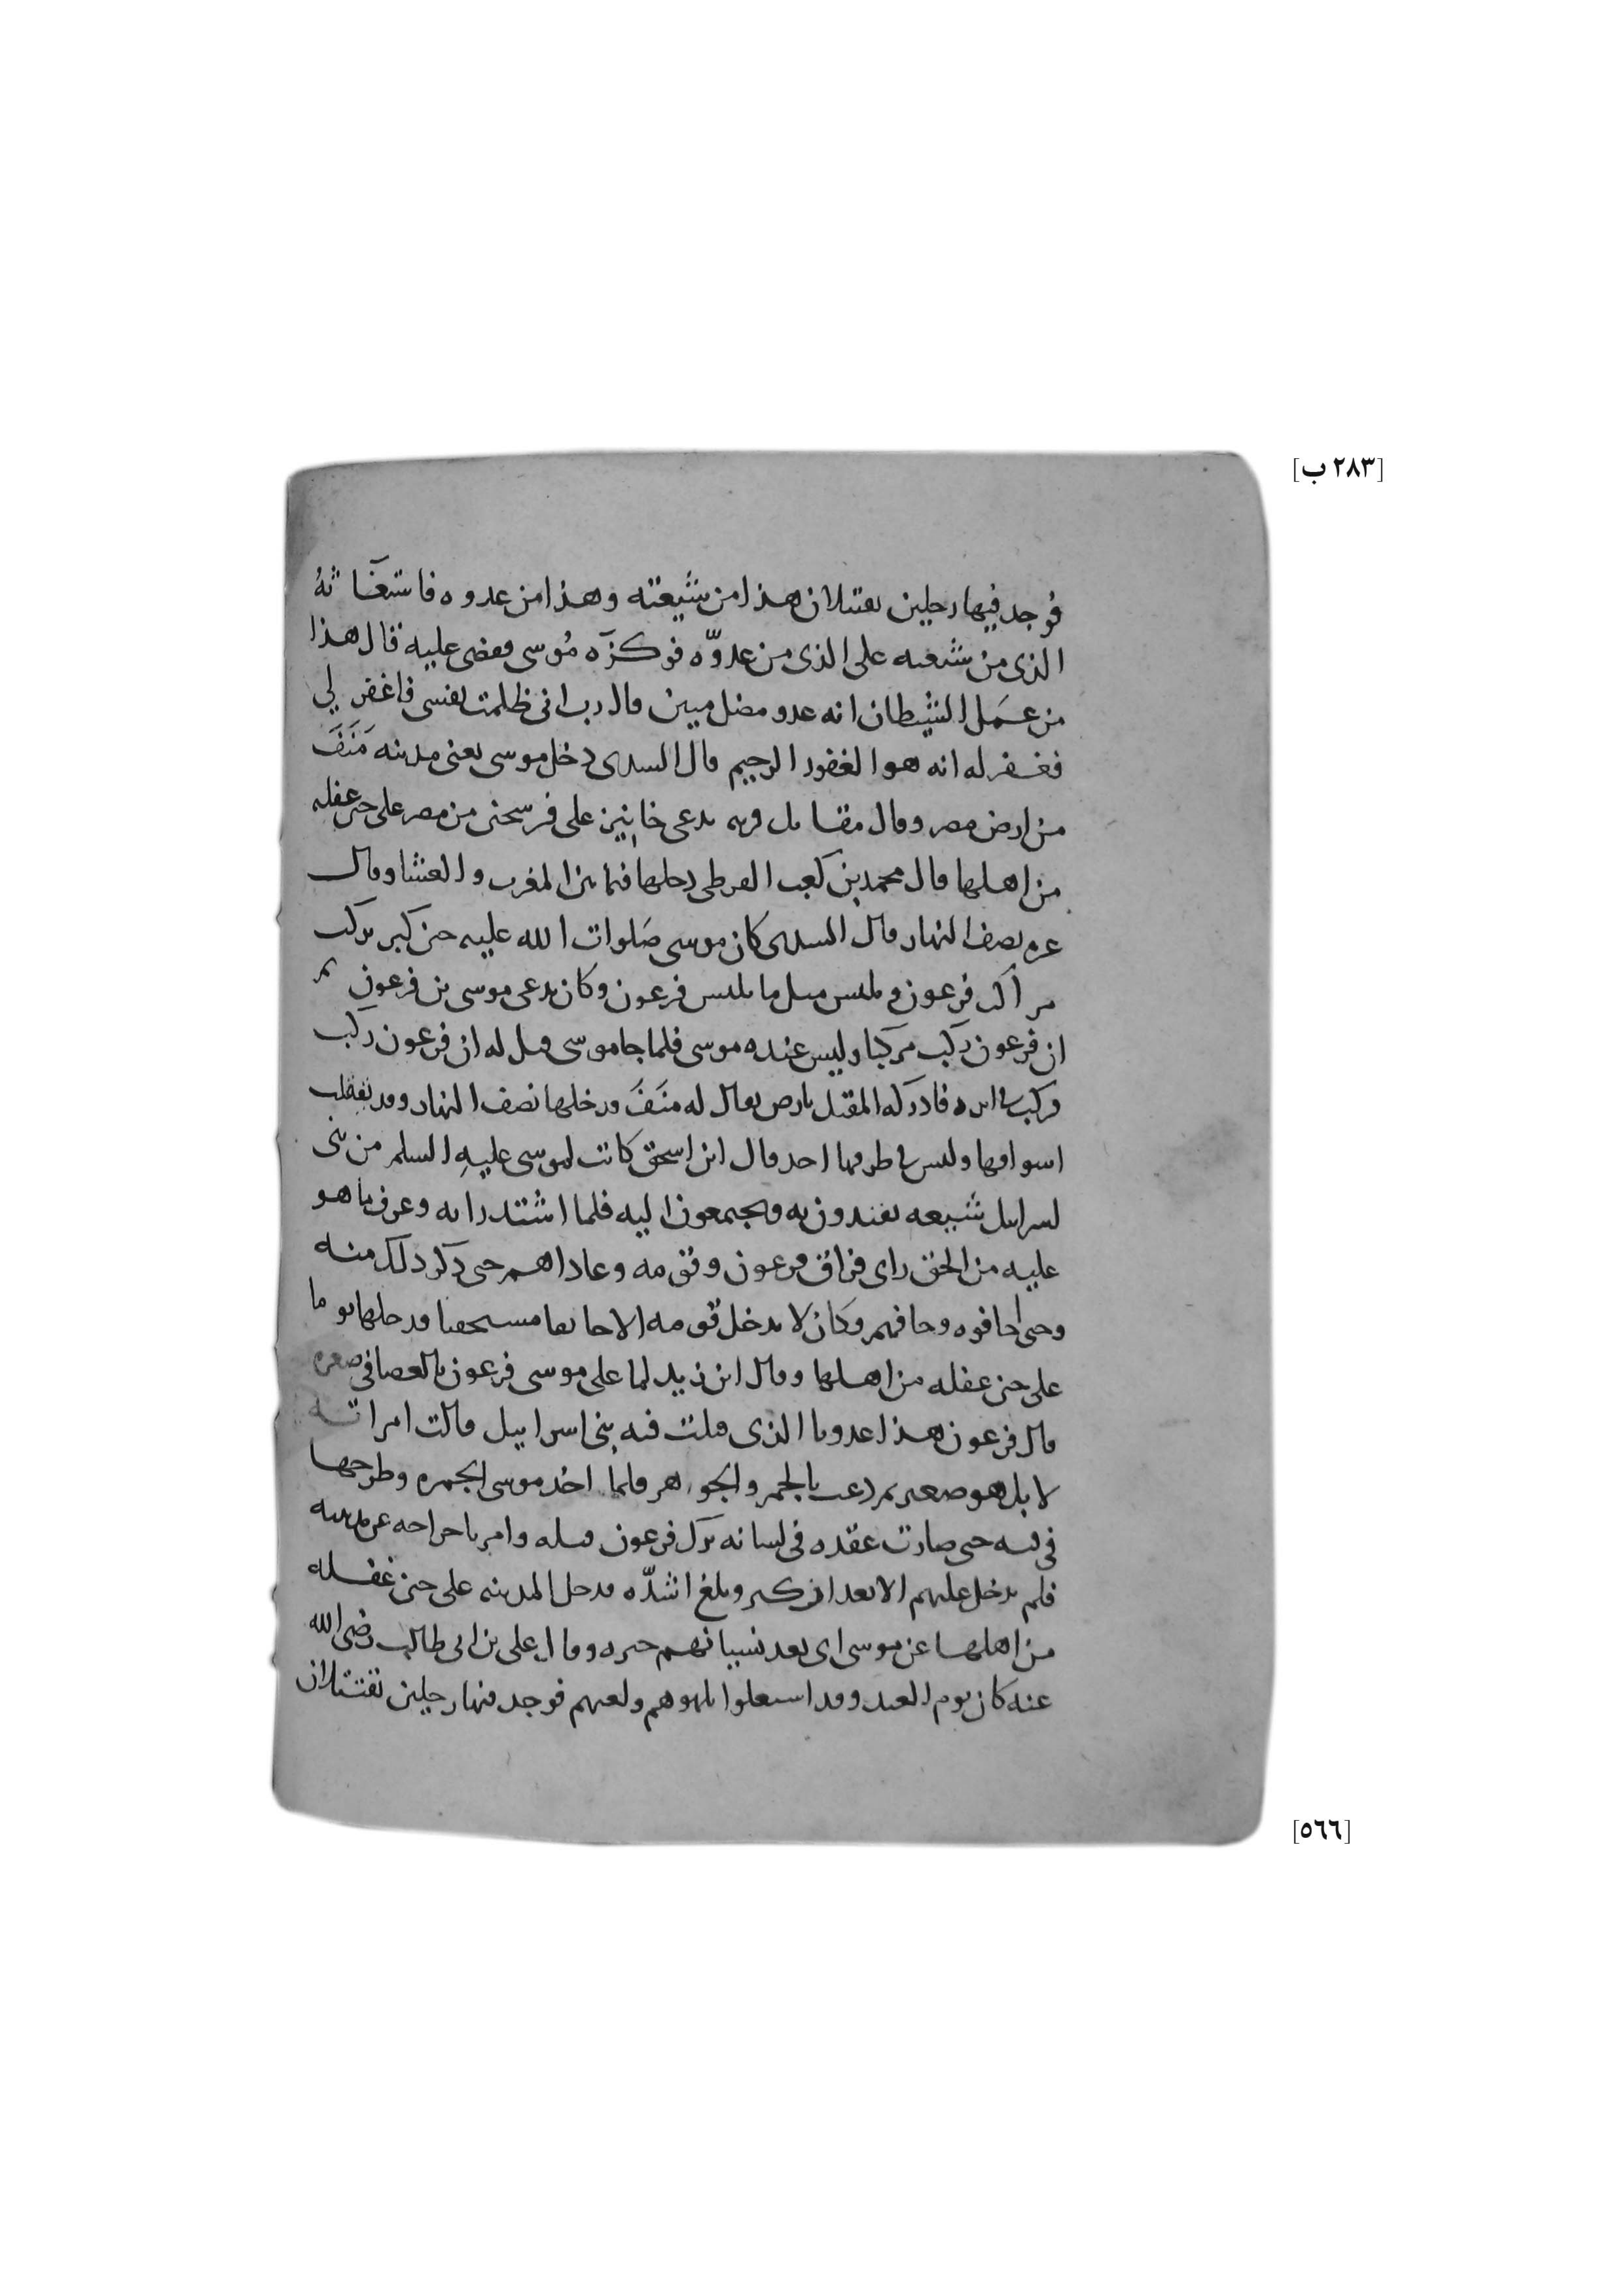 [٢٨٣ ب]
فوجد فيها رجلين يقتتلان هذا من شيعته وهذا من عدوه فاستغاثه
الذى من شيعته على الذى من عدوّه فوكزه مُوسى فقضى عليه قال هذا
من عمَل الشيطان انه عدو مضل مبين قال رب انى ظلمت نفسى فاغفر لي
فغفر له انه هو الغفور الرحيم قال السدى دخل موسى يعنى مدينه مَنَفَ
من ارض مصر وقال مقاتل قريه تدعى خانين على فرسخين من مصر على حين غفله
من اهلها قال محمد بن كعب القرظى دخلها فيما بين المغرب والعشا وقال
غيره نصف النهار قال السدى كان موسى صَلوات الله عليه حين كبر يركب
مراكب فرعون ويلبس مثل ما يلبس فرعون وكان يدعى موسى بن فرعون ثم
ان فرعون ركب مركبا وليس عنده موسى فلما جا موسى قيل له ان فرعون ركب
فركب فى اثره فادركه المقيل بارض يقال له منَفَ فدخلها نصف النهار وقد تغلقت
اسواقها وليس فى طرقها احد قال ابن اسحق كانت لموسى عليهِ السلم من بنى
اسرايل شيعه يقتدون به ويجتمعون اليه فلما اشتد رايه وعرف ما هو
عليه من الحق راى فراق فرعون وقومه وعاداهم حتى ذكر ذلك منه
وحتى اخافوه وخافهم وكان لا يدخل قومه الا خايفا مستخفيا فدخلها يوما
على حين غفله من اهلها وقال ابن زيد لما على موسى فرعون بالعصا فى صغره
قال فرعون هذا عدونا الذى قتلت فيه بنى اسراييل قالت امراته
لا بل هو صغير ثم دعت بالجمر والجواهر فلما اخذ موسى الجمره وطرحها
فى فيه حتى صارت عقده فى لسانه ترك فرعون قتله وامر باخراجه عن مدينته
فلم يدخل عليهم الا بعد ان كبر وبلغ اشدّه فدخل المدينه على حين غفله
من اهلها عن موسى اى بعد نسيانهم خبره وقال على بن ابى طالب رضى الله
عنه كان يوم العيد وقد اشتغلوا بلهوهم ولعبهم فوجد فيها رجلين يقتتلان
[٥٦٦]